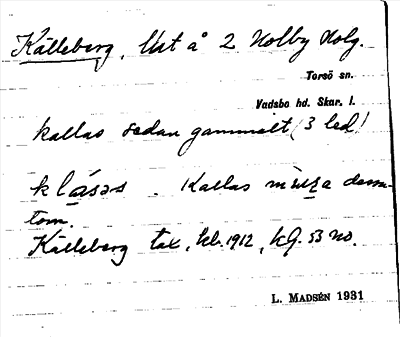 Källeberg, Ust å 2 Holby Holg.
Torsö sn.
Vadsbo hd. Skar. l.
kallas sedan gammalt (3 led)
klásəs. Kallas
tom.
Källeberg tax, kb. 1912, kg. 53 no.
L. MADSÉN 1931